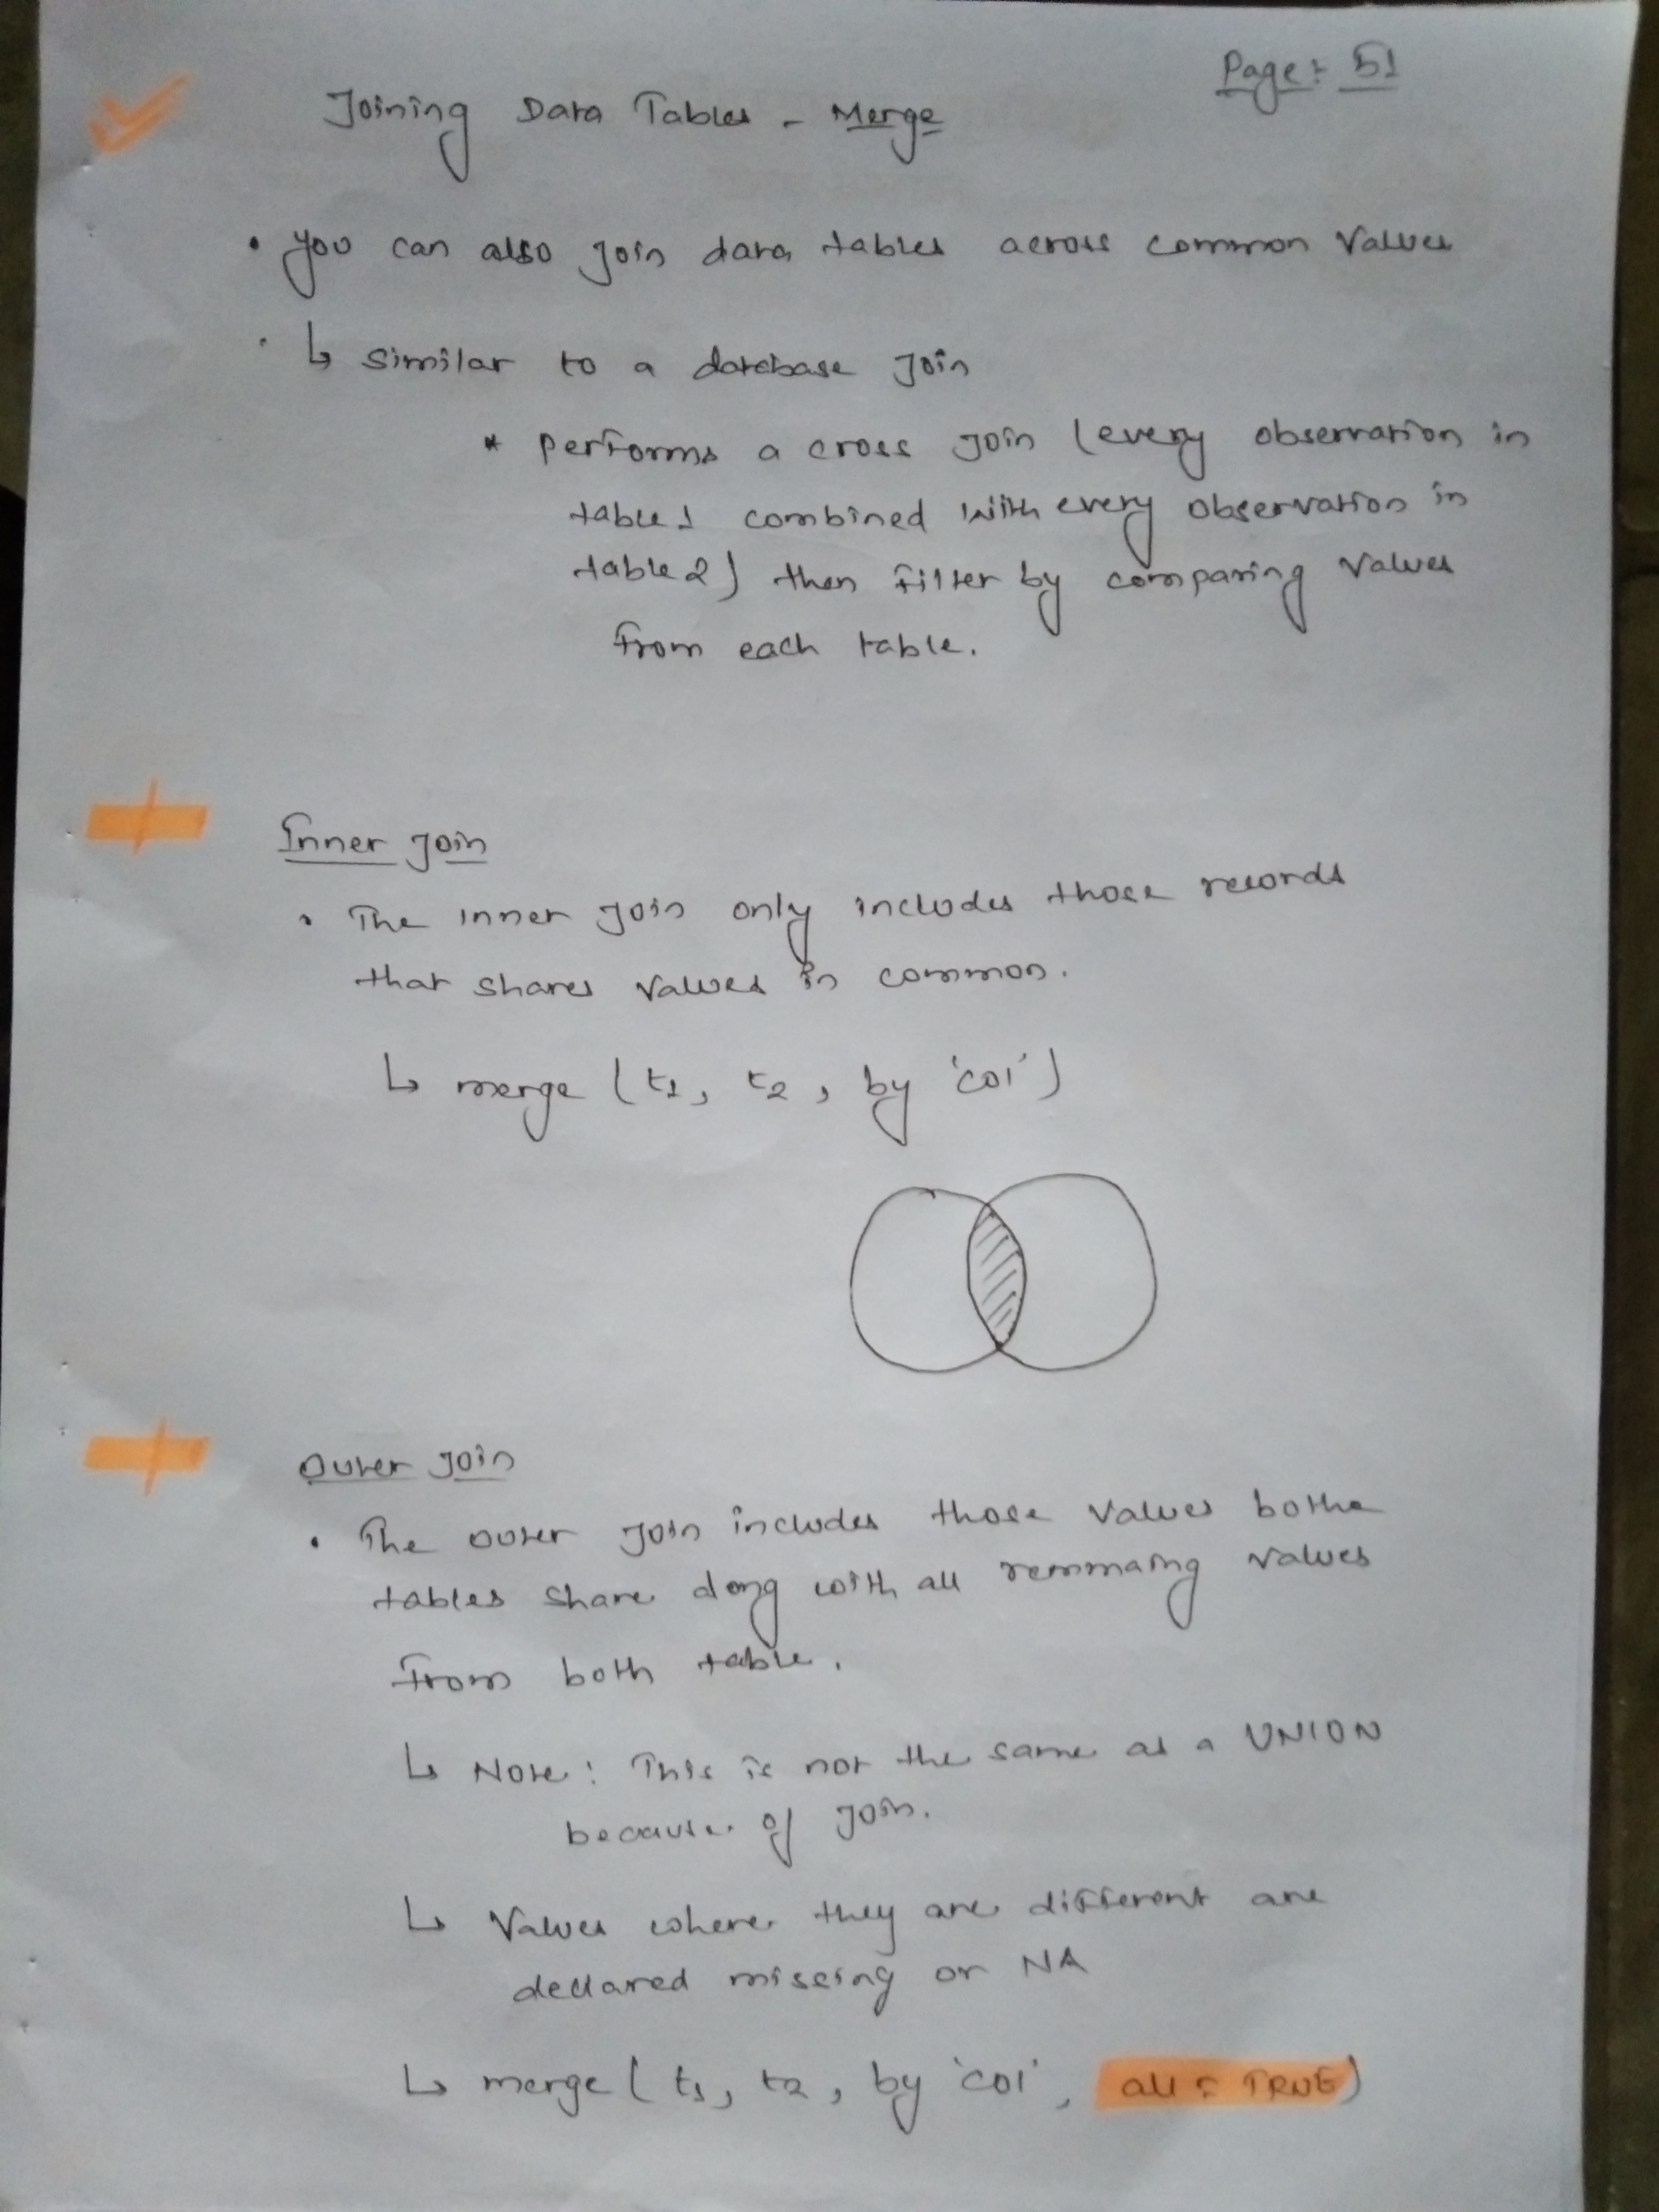 Page: 51
Joining Data Tables - Merge
• you can also join data tables across common values
↳ similar to a database join
* performs a cross join (every observation in
table1 combined with every observation in
table2) then filter by comparing values
from each table.
Inner Join
• The inner join only includes those records
that shares values in common.
↳ merge (t1, t2, by 'col')
Outer Join
• The outer join includes those values bothe
tables share along with all remmaing values
from both table.
↳ Note: This is not the same as a UNION
because of join.
↳ Values where they are different are
declared missing or NA
↳ merge (t1, t2, by 'col', all = TRUE)